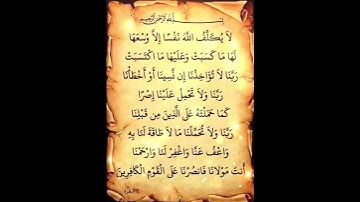 بسم الله الرحمن الرحيم
لَا يُكَلِّفُ اللهُ نَفْسًا إِلَّا وُسْعَهَا
لَهَا مَا كَسَبَتْ وَعَلَيْهَا مَا اكْتَسَبَتْ
رَبَّنَا لَا تُؤَاخِذْنَا إِن نَّسِينَا أَوْ أَخْطَأْنَا
رَبَّنَا وَلَا تَحْمِلْ عَلَيْنَا إِصْرًا
كَمَا حَمَلْتَهُ عَلَى الَّذِينَ مِن قَبْلِنَا
رَبَّنَا وَلَا تُحَمِّلْنَا مَا لَا طَاقَةَ لَنَا بِهِ
وَاعْفُ عَنَّا وَاغْفِرْ لَنَا وَارْحَمْنَا
أَنتَ مَوْلَانَا فَانصُرْنَا عَلَى الْقَوْمِ الْكَافِرِينَ